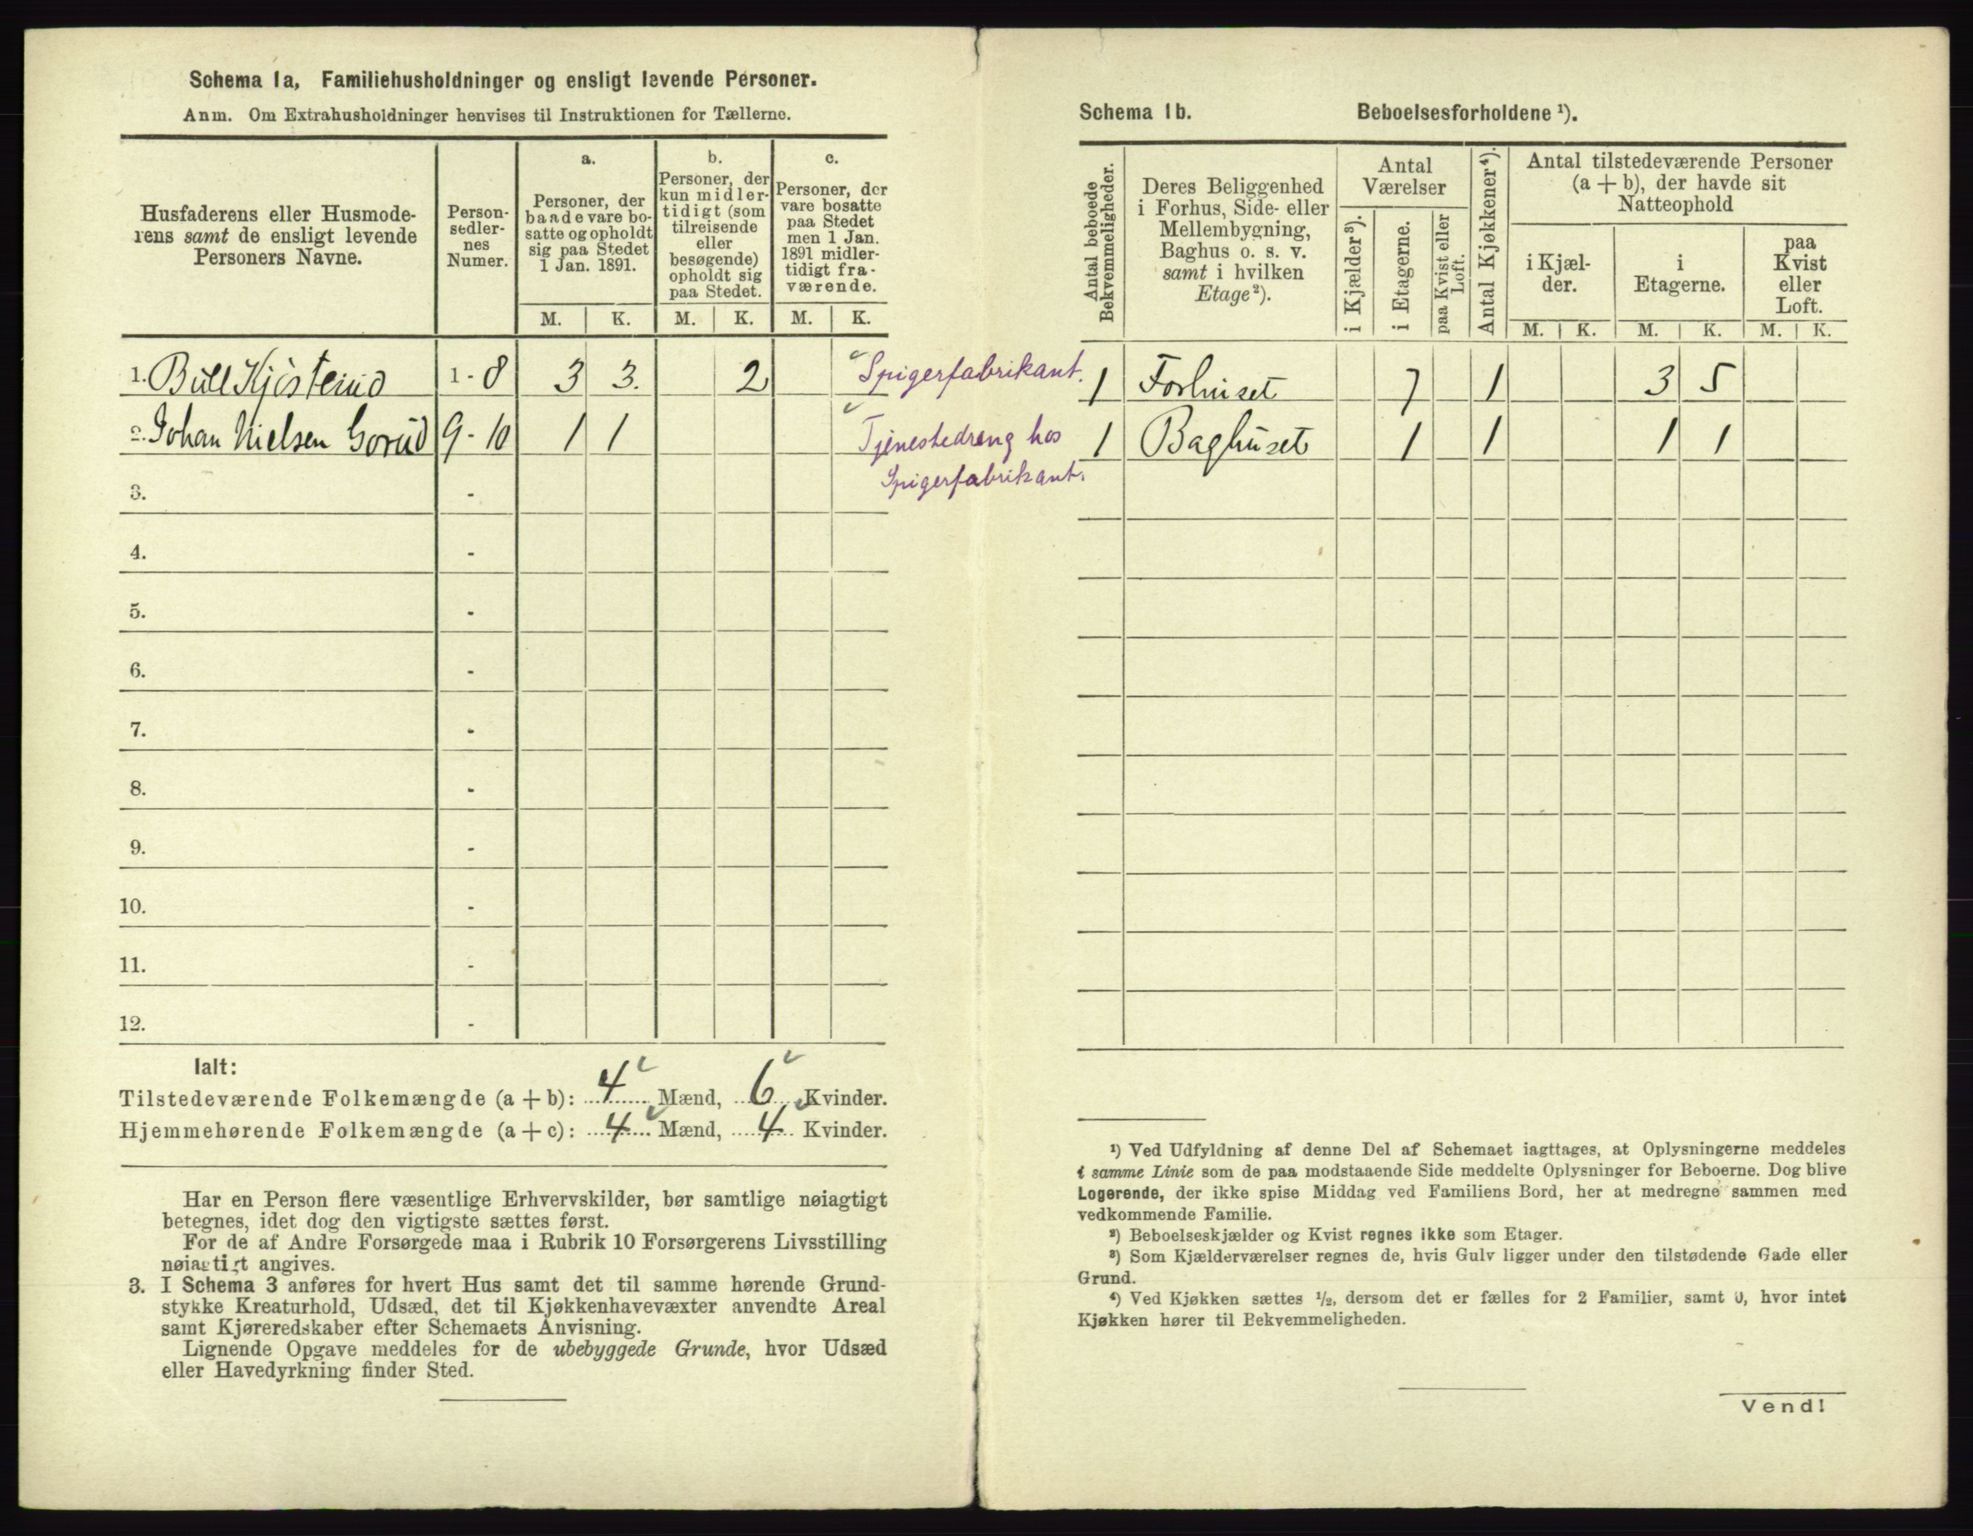 Schema 1a, Familiehusholdninger og ensligt levende Personer.
Anm. Om Extrahusholdninger henvises til Instruktionen for Tællerne.
Husfaderens eller Husmode-
rens samt de ensligt levende
Personers Navne.
Person-
sedler-
nes
Numer.
a.
Personer, der
baade vare bo-
satte og opholdt
sig paa Stedet
1 Jan. 1891.
b.
Personer, der
kun midler-
tidigt (som
tilreisende
eller
besøgende)
opholdt sig
paa Stedet.
c.
Personer, der
vare bosatte
paa Stedet
men 1 Jan.
1891 midler-
tidigt fra-
værende.
M. K. M. K. M. K.
1. Bull Kjøsterud 1 - 8 3 3. 2 Spigerfabrikant.
2. Johan Nielsen Gorud 9 - 10 1 1 Tjenestedreng hos
Spigerfabrikant.
3. -
4. -
5. -
6. -
7. -
8. -
9. -
10. -
11. -
12. -
Ialt:
Tilstedeværende Folkemængde (a + b): 4 Mænd, 6 Kvinder.
Hjemmehørende Folkemængde (a + c): 4 Mænd, 4 Kvinder.
Har en Person flere væsentlige Erhvervskilder, bør samtlige nøiagtigt
betegnes, idet dog den vigtigste sættes først.
For de af Andre Forsørgede maa i Rubrik 10 Forsørgerens Livsstilling
nøiagtigt angives.
3. I Schema 3 anføres for hvert Hus samt det til samme hørende Grund-
stykke Kreaturhold, Udsæd, det til Kjøkkenhavevæxter anvendte Areal
samt Kjøreredskaber efter Schemaets Anvisning.
Lignende Opgave meddeles for de ubebyggede Grunde, hvor Udsæd
eller Havedyrkning finder Sted.
Schema 1b. Beboelsesforholdene ¹).
Antal beboede
Bekvemmeligheder.
Deres Beliggenhed
i Forhus, Side- eller
Mellembygning,
Baghus o. s. v.
samt i hvilken
Etage²).
Antal
Værelser
i Kjælder³).
i Etagerne.
paa Kvist eller
Loft.
Antal Kjøkkener⁴).
Antal tilstedeværende Personer
(a + b), der havde sit
Natteophold
i Kjæl-
der.
i
Etagerne.
paa
Kvist
eller
Loft.
M. K. M. K. M. K.
1 Forhuset 7 1 3 5
1 Baghuset 1 1 1 1
¹) Ved Udfyldning af denne Del af Schemaet iagttages, at Oplysningerne meddeles
i samme Linie som de paa modstaaende Side meddelte Oplysninger for Beboerne. Dog blive
Logerende, der ikke spise Middag ved Familiens Bord, her at medregne sammen med
vedkommende Familie.
²) Beboelseskjælder og Kvist regnes ikke som Etager.
³) Som Kjælderværelser regnes de, hvis Gulv ligger under den tilstødende Gade eller
Grund.
⁴) Ved Kjøkken sættes ½, dersom det er fælles for 2 Familier, samt 0, hvor intet
Kjøkken hører til Bekvemmeligheden.
Vend!